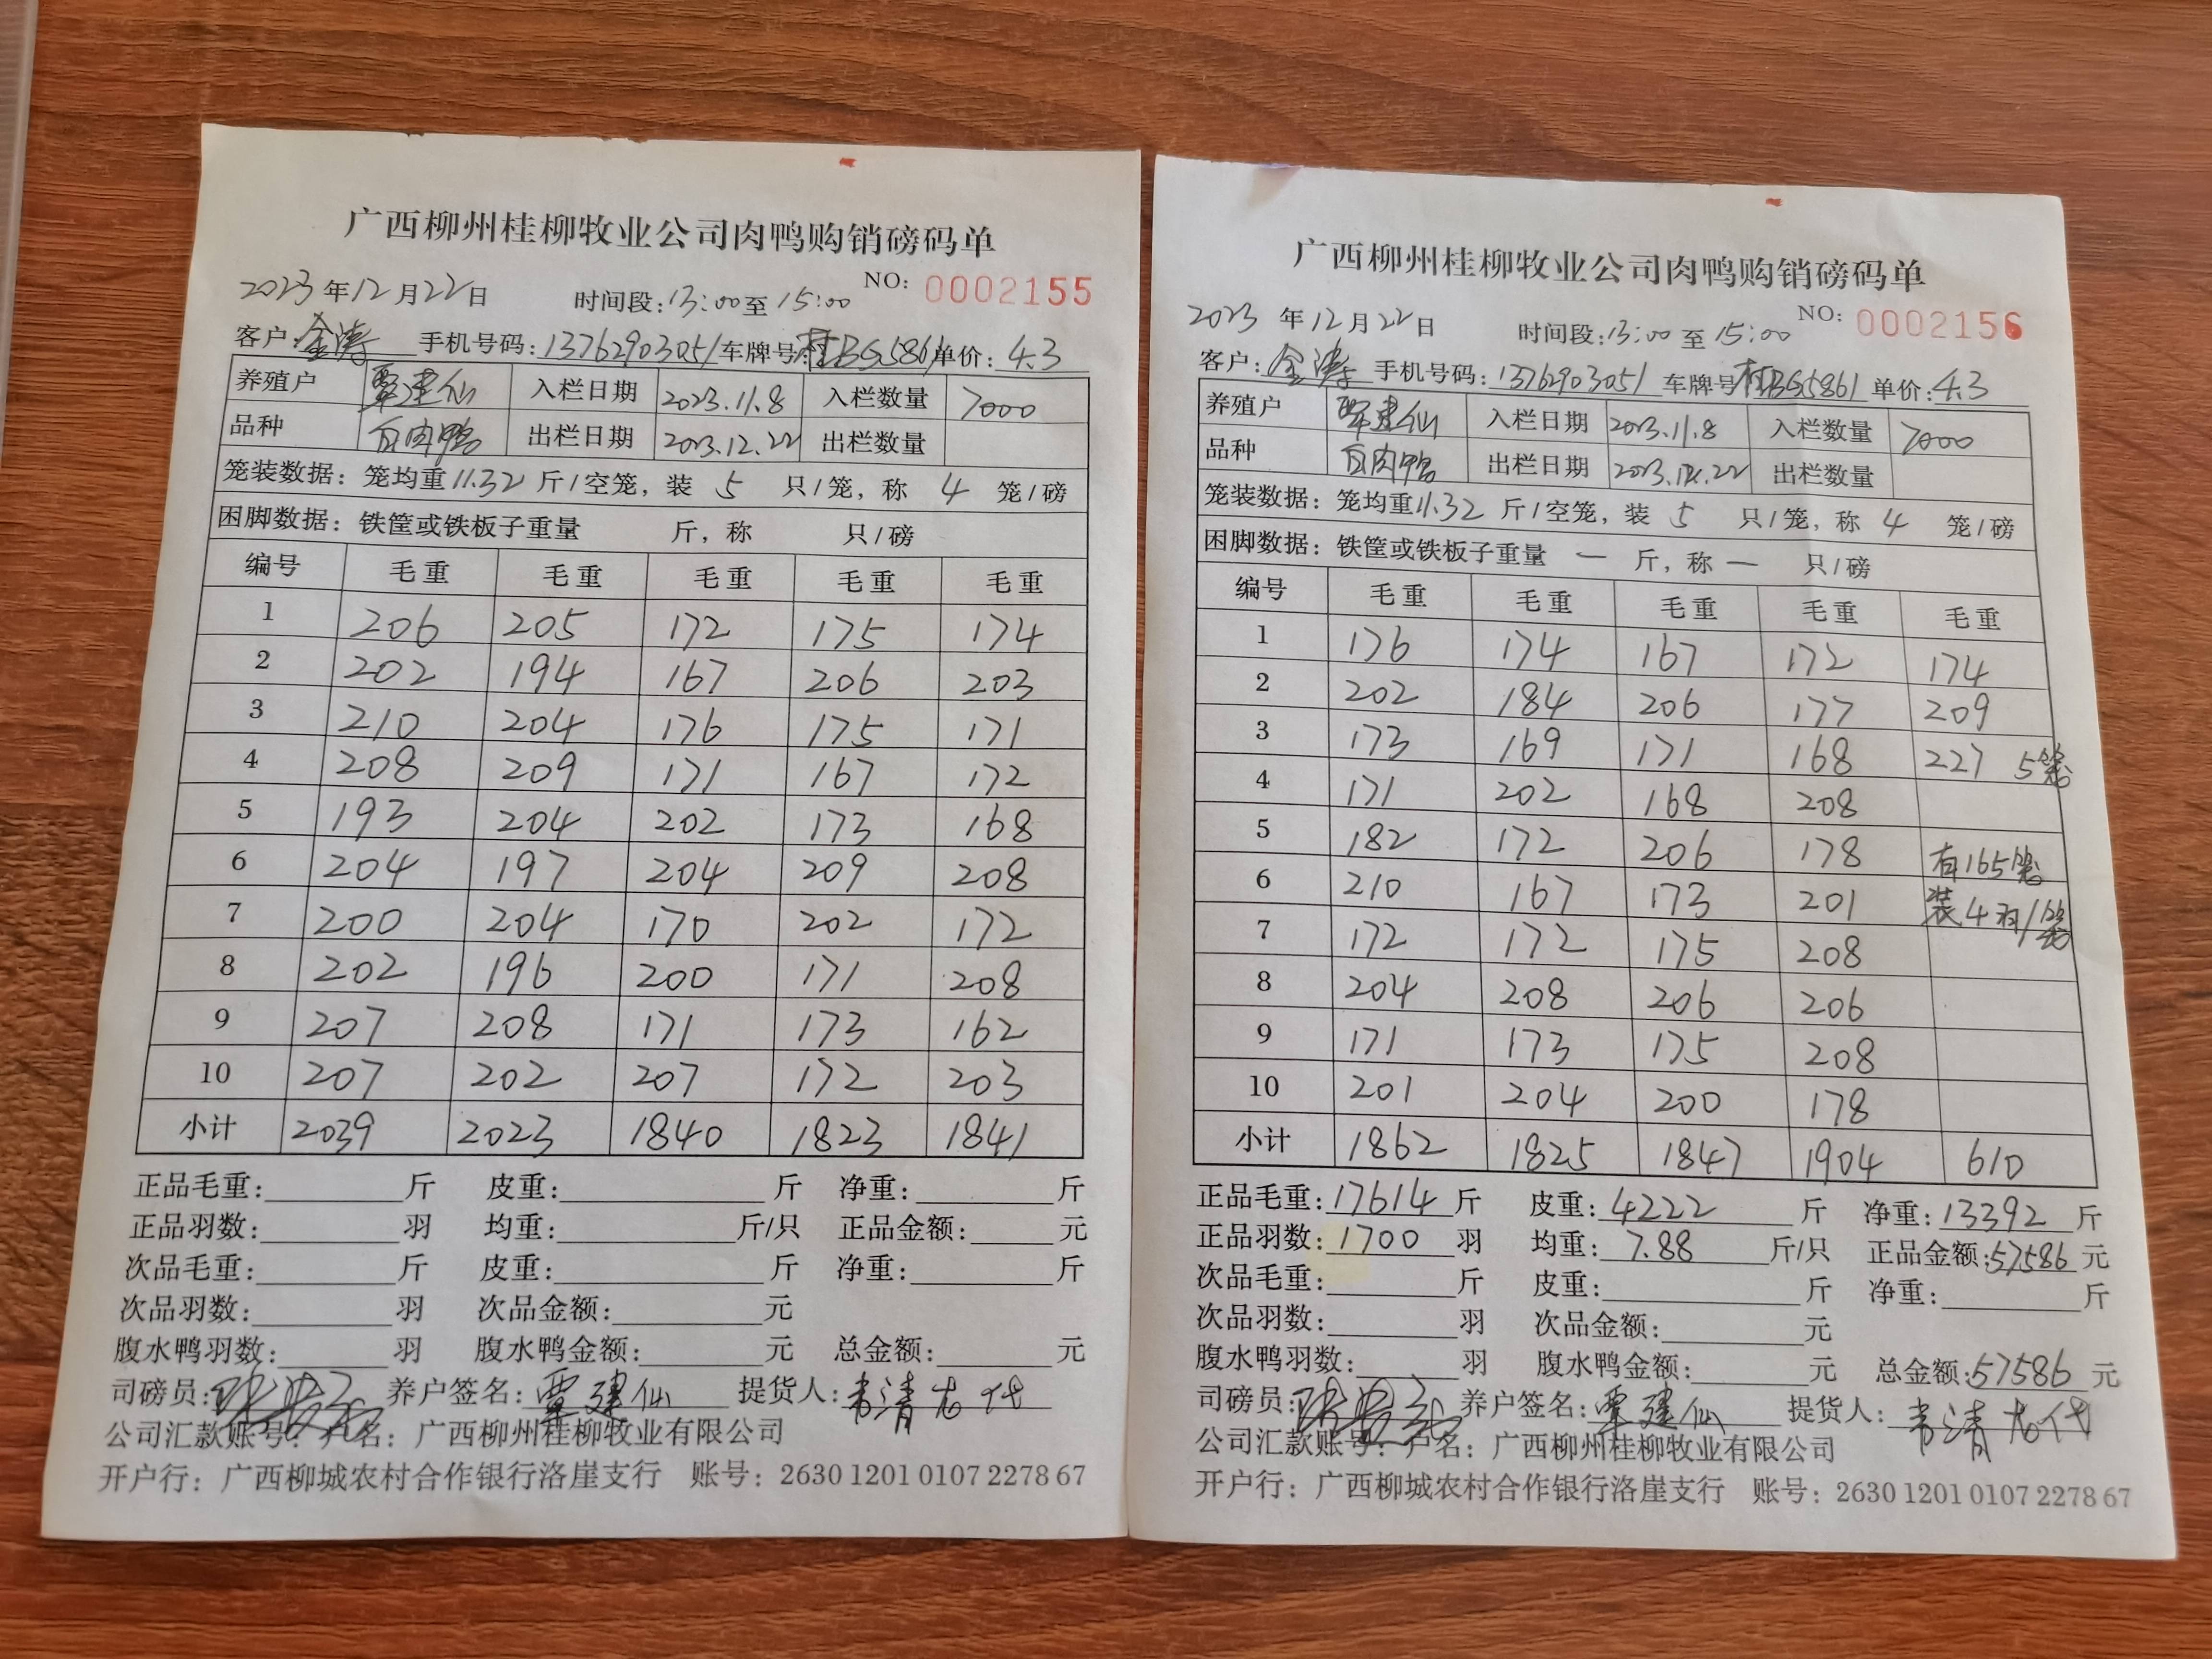 广西柳州桂柳牧业公司肉鸭购销磅码单
2023年12月22日 时间段:13:00至15:00 NO: 0002155
客户:金涛 手机号码:13762903051 车牌号:桂BG5861 单价:4.3
养殖户 覃建仙 入栏日期 2023.11.8 入栏数量 7000
品种 白肉鸭 出栏日期 2023.12.22 出栏数量
笼装数据: 笼均重11.32斤/空笼, 装 5 只/笼, 称 4 笼/磅
困脚数据: 铁筐或铁板子重量 斤, 称 只/磅
编号 毛重 毛重 毛重 毛重 毛重
1 206 205 172 175 174
2 202 194 167 206 203
3 210 204 176 175 171
4 208 209 171 167 172
5 193 204 202 173 168
6 204 197 204 209 208
7 200 204 170 202 172
8 202 196 200 171 208
9 207 208 171 173 162
10 207 202 207 172 203
小计 2039 2023 1840 1823 1841
正品毛重: 斤 皮重: 斤 净重: 斤
正品羽数: 羽 均重: 斤/只 正品金额: 元
次品毛重: 斤 皮重: 斤 净重: 斤
次品羽数: 羽 次品金额: 元
腹水鸭羽数: 羽 腹水鸭金额: 元 总金额: 元
司磅员: 养户签名: 覃建仙 提货人: 韦清龙代
公司汇款账号: 户名: 广西柳州桂柳牧业有限公司
开户行: 广西柳城农村合作银行洛崖支行 账号: 2630 1201 0107 2278 67
广西柳州桂柳牧业公司肉鸭购销磅码单
2023年12月22日 时间段:13:00至15:00 NO: 0002156
客户:金涛 手机号码:13762903051 车牌号桂BG5861 单价:4.3
养殖户 覃建仙 入栏日期 2023.11.8 入栏数量 7000
品种 白肉鸭 出栏日期 2023.12.22 出栏数量
笼装数据: 笼均重11.32斤/空笼, 装 5 只/笼, 称 4 笼/磅
困脚数据: 铁筐或铁板子重量 — 斤, 称 — 只/磅
编号 毛重 毛重 毛重 毛重 毛重
1 176 174 167 172 174
2 202 184 206 177 209
3 173 169 171 168 227 5笼
4 171 202 168 208
5 182 172 206 178 有165笼
6 210 167 173 201 装4羽/笼
7 172 172 175 208
8 204 208 206 206
9 171 173 175 208
10 201 204 200 178
小计 1862 1825 1847 1904 610
正品毛重: 17614 斤 皮重: 4222 斤 净重: 13392 斤
正品羽数: 1700 羽 均重: 7.88 斤/只 正品金额: 57586 元
次品毛重: 斤 皮重: 斤 净重: 斤
次品羽数: 羽 次品金额: 元
腹水鸭羽数: 羽 腹水鸭金额: 元 总金额: 57586 元
司磅员: 养户签名: 覃建仙 提货人: 韦清龙代
公司汇款账号: 户名: 广西柳州桂柳牧业有限公司
开户行: 广西柳城农村合作银行洛崖支行 账号: 2630 1201 0107 2278 67